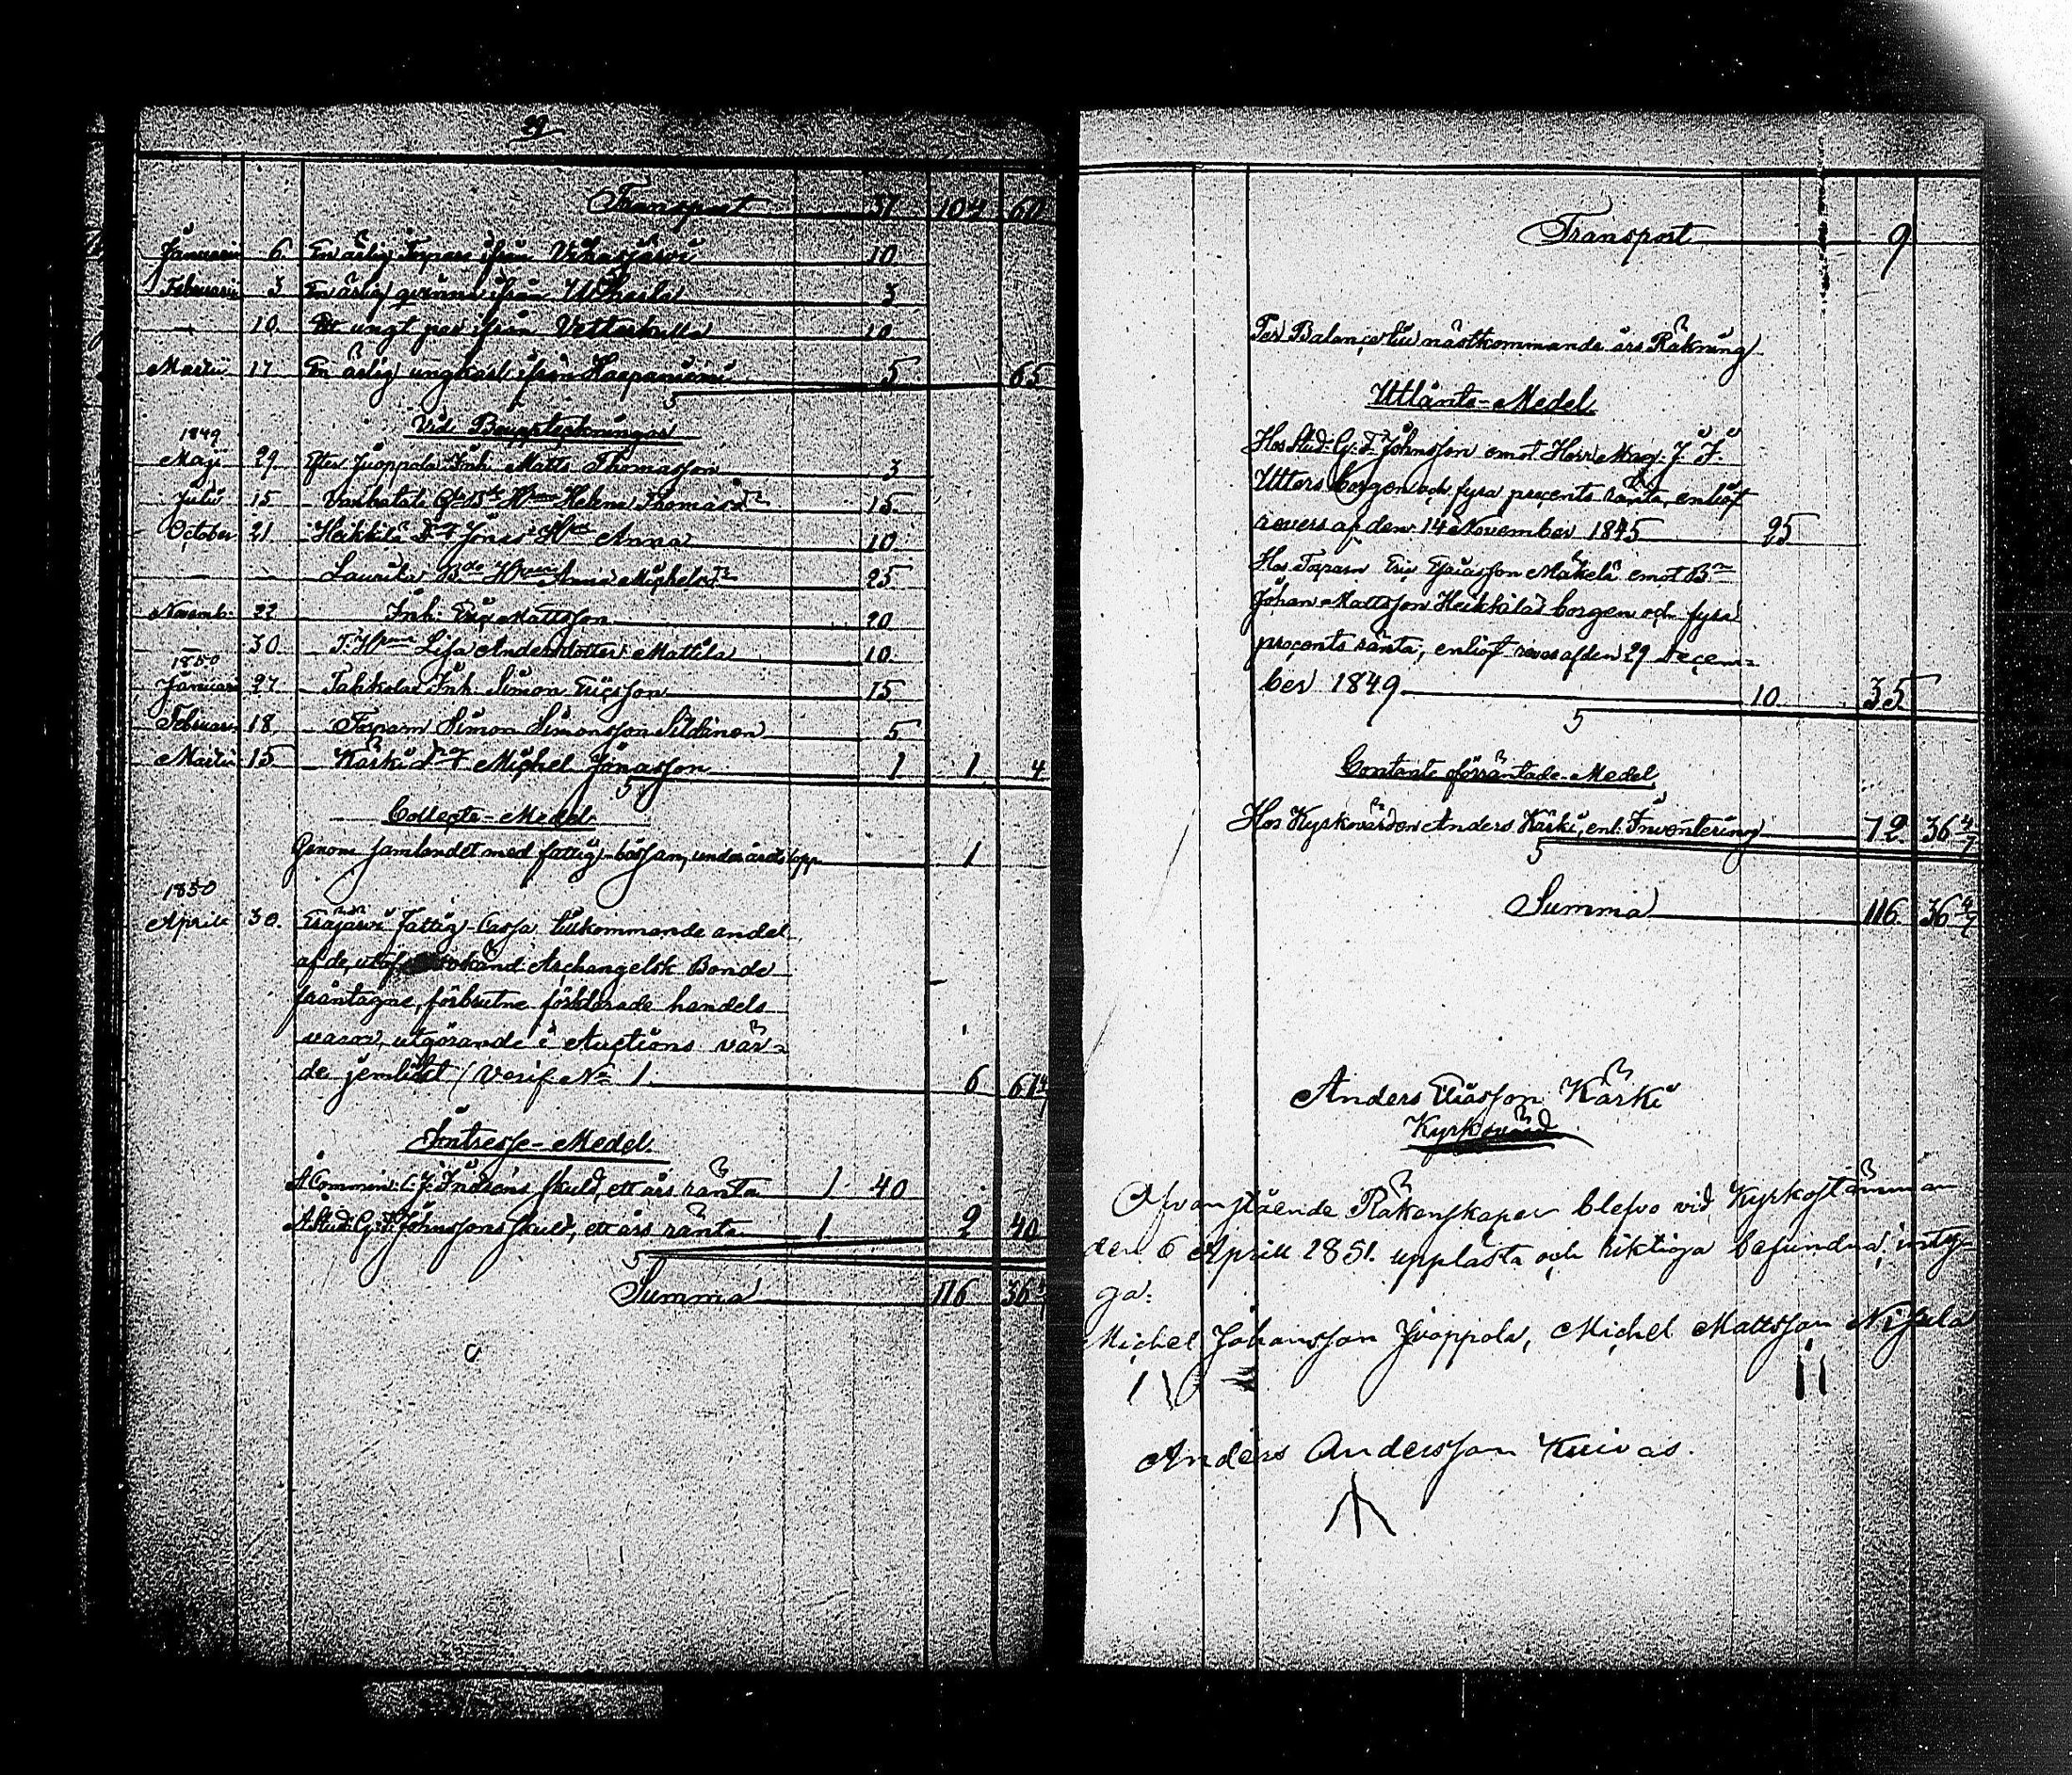 29
Transport 37 104 60
Januarii 6. En ärlig Torpare ifrån Vihasjärvi 10.
Februarii 3 En ärlig qvinna ifrån Uiherla 3
— 10. Ett ungt par ifrån Vetterkulla 10.
Martii 17 En ärlig ungkarl ifrån Haapaniemi 5 65
Vid Bouppteckningar
1849
Maji 29 Efter Juoppala Inh. Matts Thomasson 3
Julii 15 — Hustru Helena Thomasdr 15.
October 21 — Heikkilä Jonas Hu Anna 10.
— — Laurila Bde Hustru Anna Michelsdr 25
Novemb. 22 — Inh. Eric Mattsson 20
30 — T. Hustru Lisa Andersdotter Mattila 10.
1850
Januari 27 — Tahkolas Inh. Simon Ericsson 15
Februari 18 — Torparn Simon Simonsson Sildinen 5
Martii 15 — Kärki Michel Jonasson 1 1 4
Collecte-Medel.
Genom samlandet med fattig-bössan, under årets lopp 1
1850
Aprill 30. Eräjärvi Fattig-Cassa tillkommande andel
af de, utaf okänd Archangelsk Bonde
fråntagne, förbrutne förklarade handels
varor, utgörande i Auctions vär=
de jemlikt (Verif. No 1. 6 61 4/7
Intresse-Medel.
Å Commin: C. J. Indréns skuld, ett års ränta 1 40
Å Stud: G. F. Johnssons skuld, ett års ränta 1. 2 40
Summa 116 36 4/7
Transport 9
Per Balance till nästkommande års Räkning
Utlånte-Medel.
Hos Stud: G. F. Johnsson emot Herr Mag. J. F.
Utters borgen och fyra procents ränta, enligt
revers af den 14 November 1845 25
Hos Torparn Eric Esaiasson Mäkelä emot Bn
Johan Mattsson Heikkiläs borgen och fyra
procents ränta, enligt revers af den 29 Decem=
ber 1849 10. 35
Contante oförräntade-Medel
Hos Kyrkovärden Anders Kärki, enl. Inventering 72. 36 4/7
Summa 116. 36 4/7
Anders Eliasson Kärki
Kyrkovärd
Ofvanstående Räkenskaper blefvo vid Kyrkostämman
den 6 Aprill 1851. upplästa och riktiga befundna, inty=
ga:
Michel Johansson Juoppola, Michel Mattsson Nisula
Anders Andersson Kuivas.